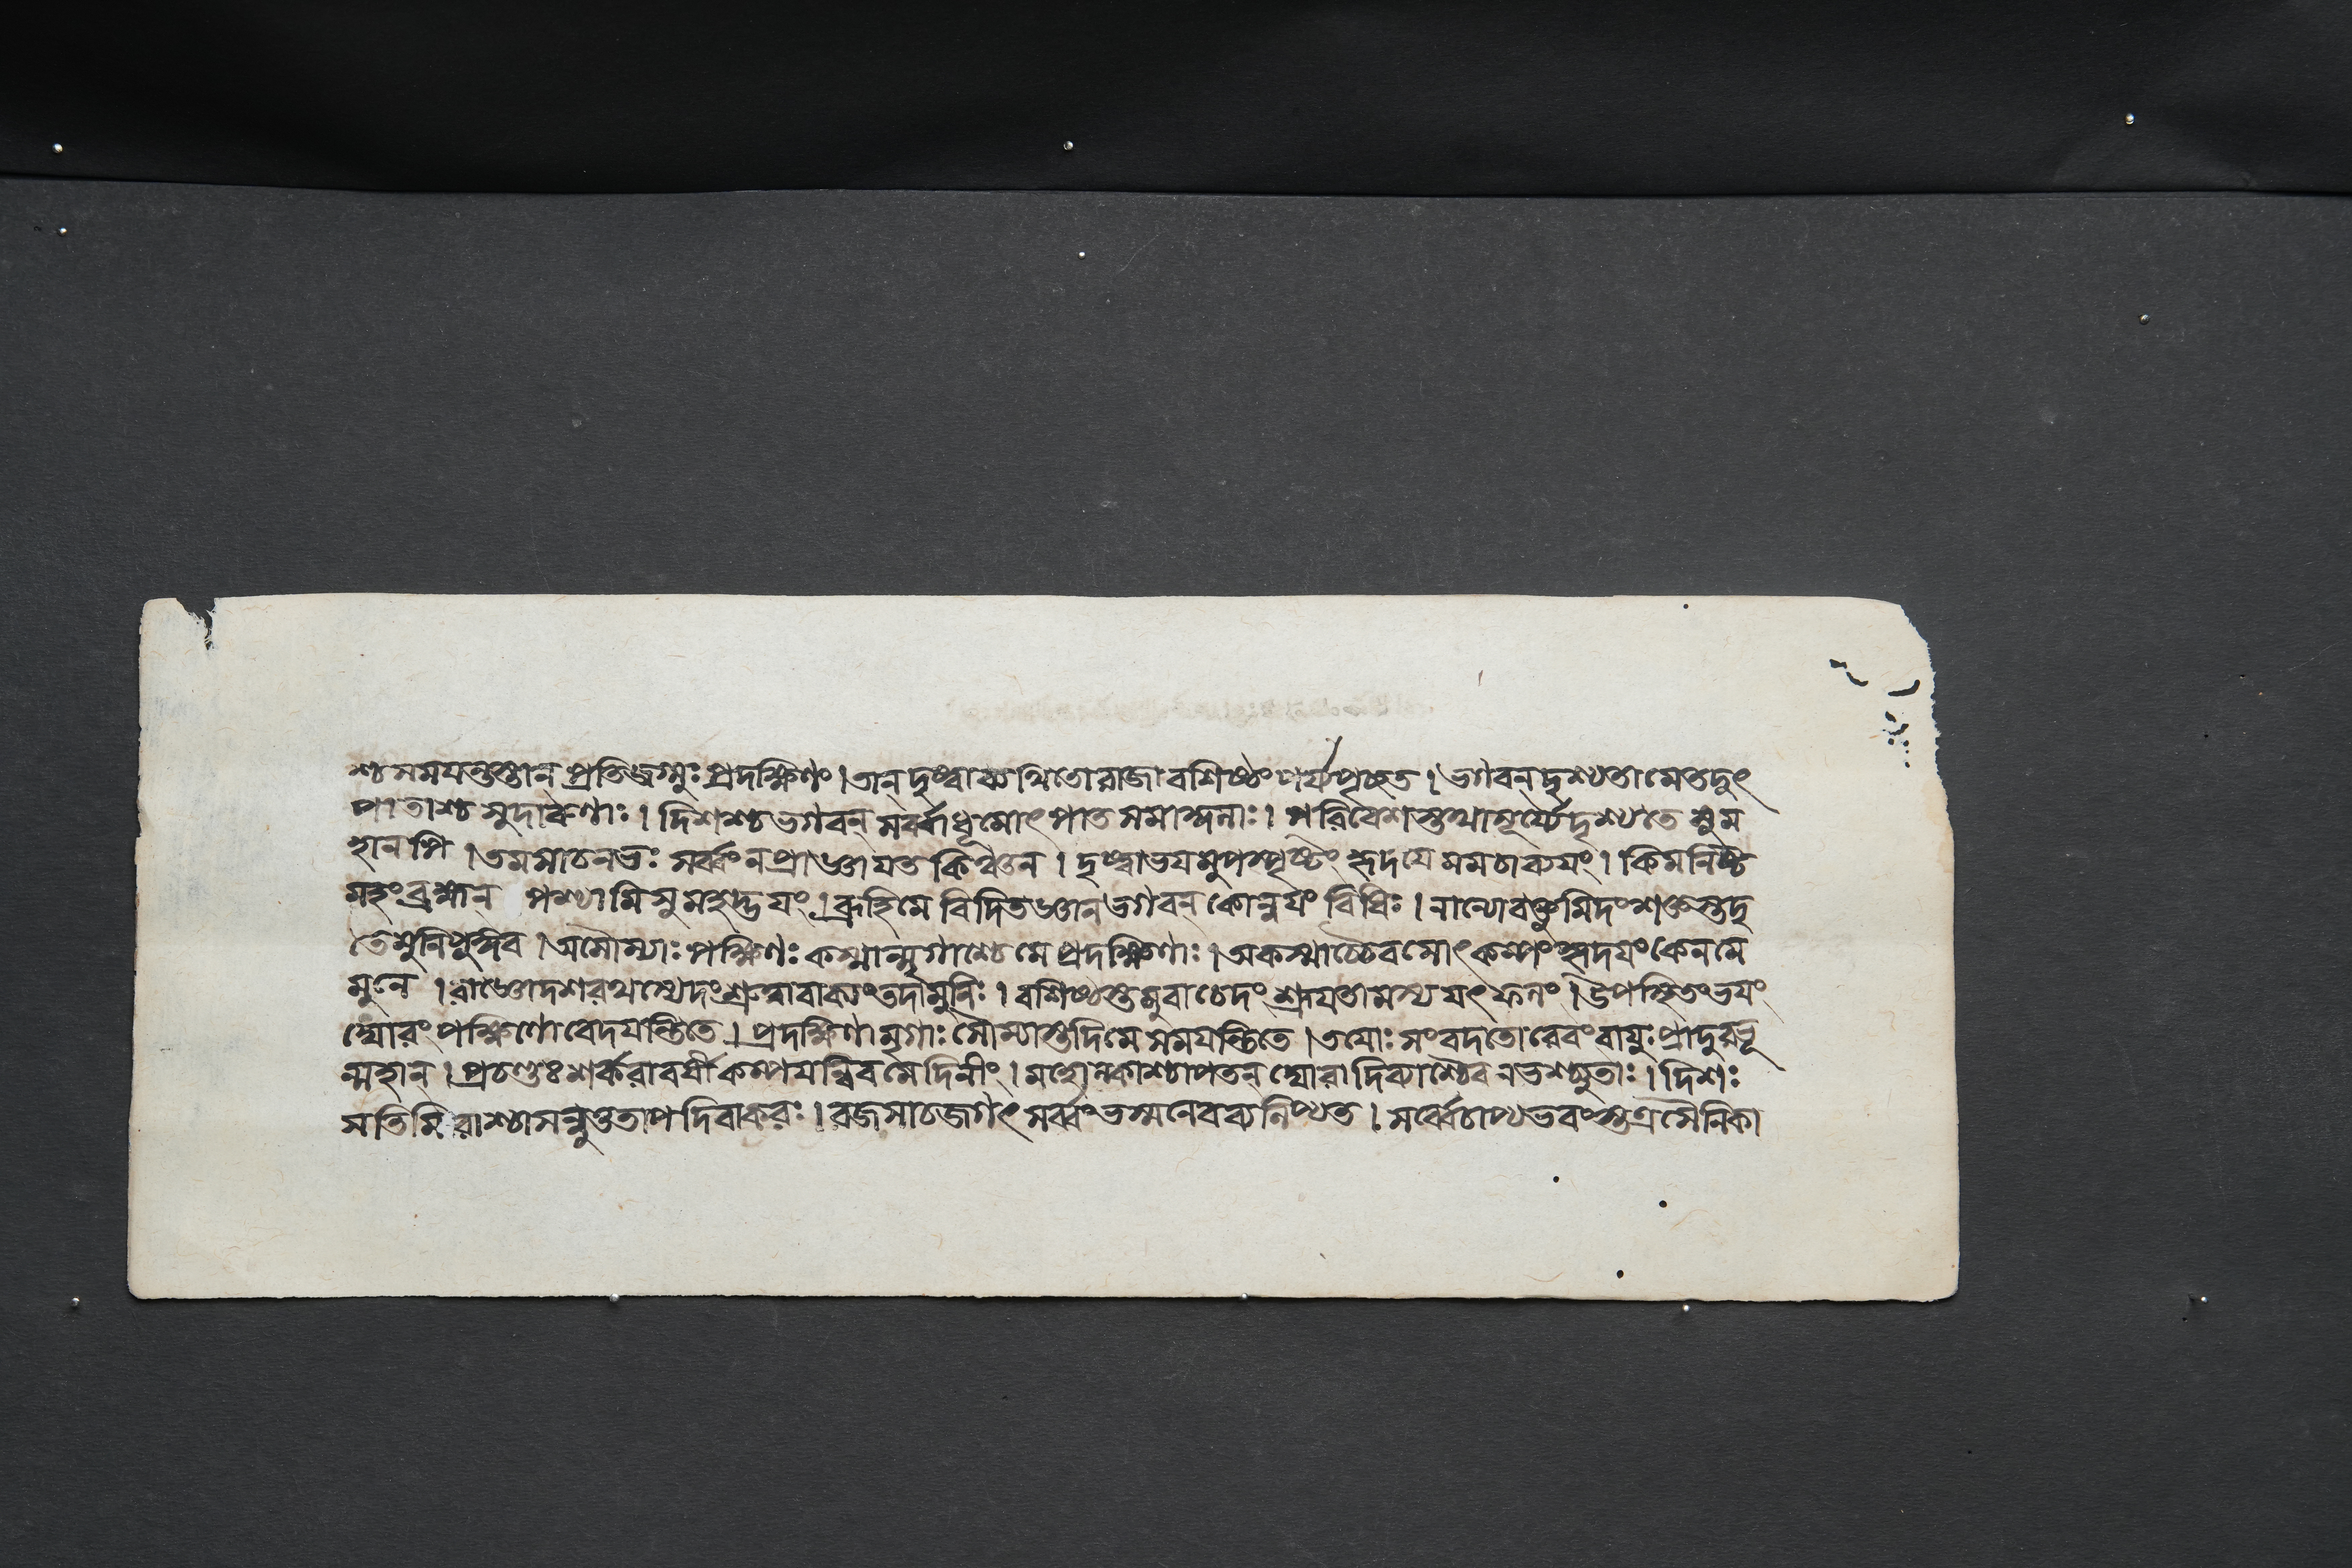 শ্চ সমযন্তস্তান্ প্রতিজগ্মুঃ প্রদক্ষিণং । তান্ দৃষ্ট্বা ব্যথিতো রাজা বশিষ্ঠং পর্য্যপৃচ্ছত । ভগবন্ দৃশ্যতামেতদুৎ
পাতাশ্চ সুদারুণাঃ । দিশশ্চ ভগবন্ সর্ব্বা ধূমোৎপাত সমাচ্ছন্নাঃ । পরিবেশস্তথা সূর্য্যে দৃশ্যতে সুম
হানপি । তমসা চ নভঃ সর্ব্বং ন প্রাজ্ঞাযত কিঞ্চন । দৃষ্ট্বা ভযমুপস্পৃষ্টং হৃদযে মম চাব্যযং । কিমনিষ্ট
মহং ব্রহ্মন্ পশ্যামি সুমহদ্ভযং । ব্রূহি মে বিদিতজ্ঞান ভগবন্ কোন্বযং বিধিঃ । নান্যো বক্তুমিদং শক্তস্ত্বদৃ
তে মুনিপুঙ্গব । অসৌম্যাঃ পক্ষিণঃ কস্মান্মৃগাশ্চেমে প্রদক্ষিণাঃ । অকস্মাচ্চৈবমোৎকম্পং হৃদযং কেন মে
মুনে । রাজ্ঞো দশরথস্যেদং শ্রুত্বা বাক্যং তদা মুনিঃ । বশিষ্ঠস্তমুবাচেদং শ্রূযতামস্য যৎ ফলং । উপস্থিতং ভযং
ঘোরং পক্ষিণো বেদযন্তি তে । প্রদক্ষিণা মৃগাঃ সৌম্যাস্তদিমে সমযন্তি তে । তযোঃ সংবদতোরেবং বাযুঃ প্রাদুরভূ
ন্মহান্ । প্রচণ্ডঃ শর্করাবর্ষী কম্পযন্নিব মেদিনীং । মহোল্কাশ্চাপতন্ ঘোরা দিব্যাশ্চৈব নভশ্চ্যুতাঃ । দিশঃ
সতিমিরাশ্চাসন্ন ততাপ দিবাকরঃ । রজসা চ জগৎ সর্ব্বং ভস্মনেব ব্যলিপ্যত । সর্ব্বে চাপ্যভবংস্তত্র সৈনিকা